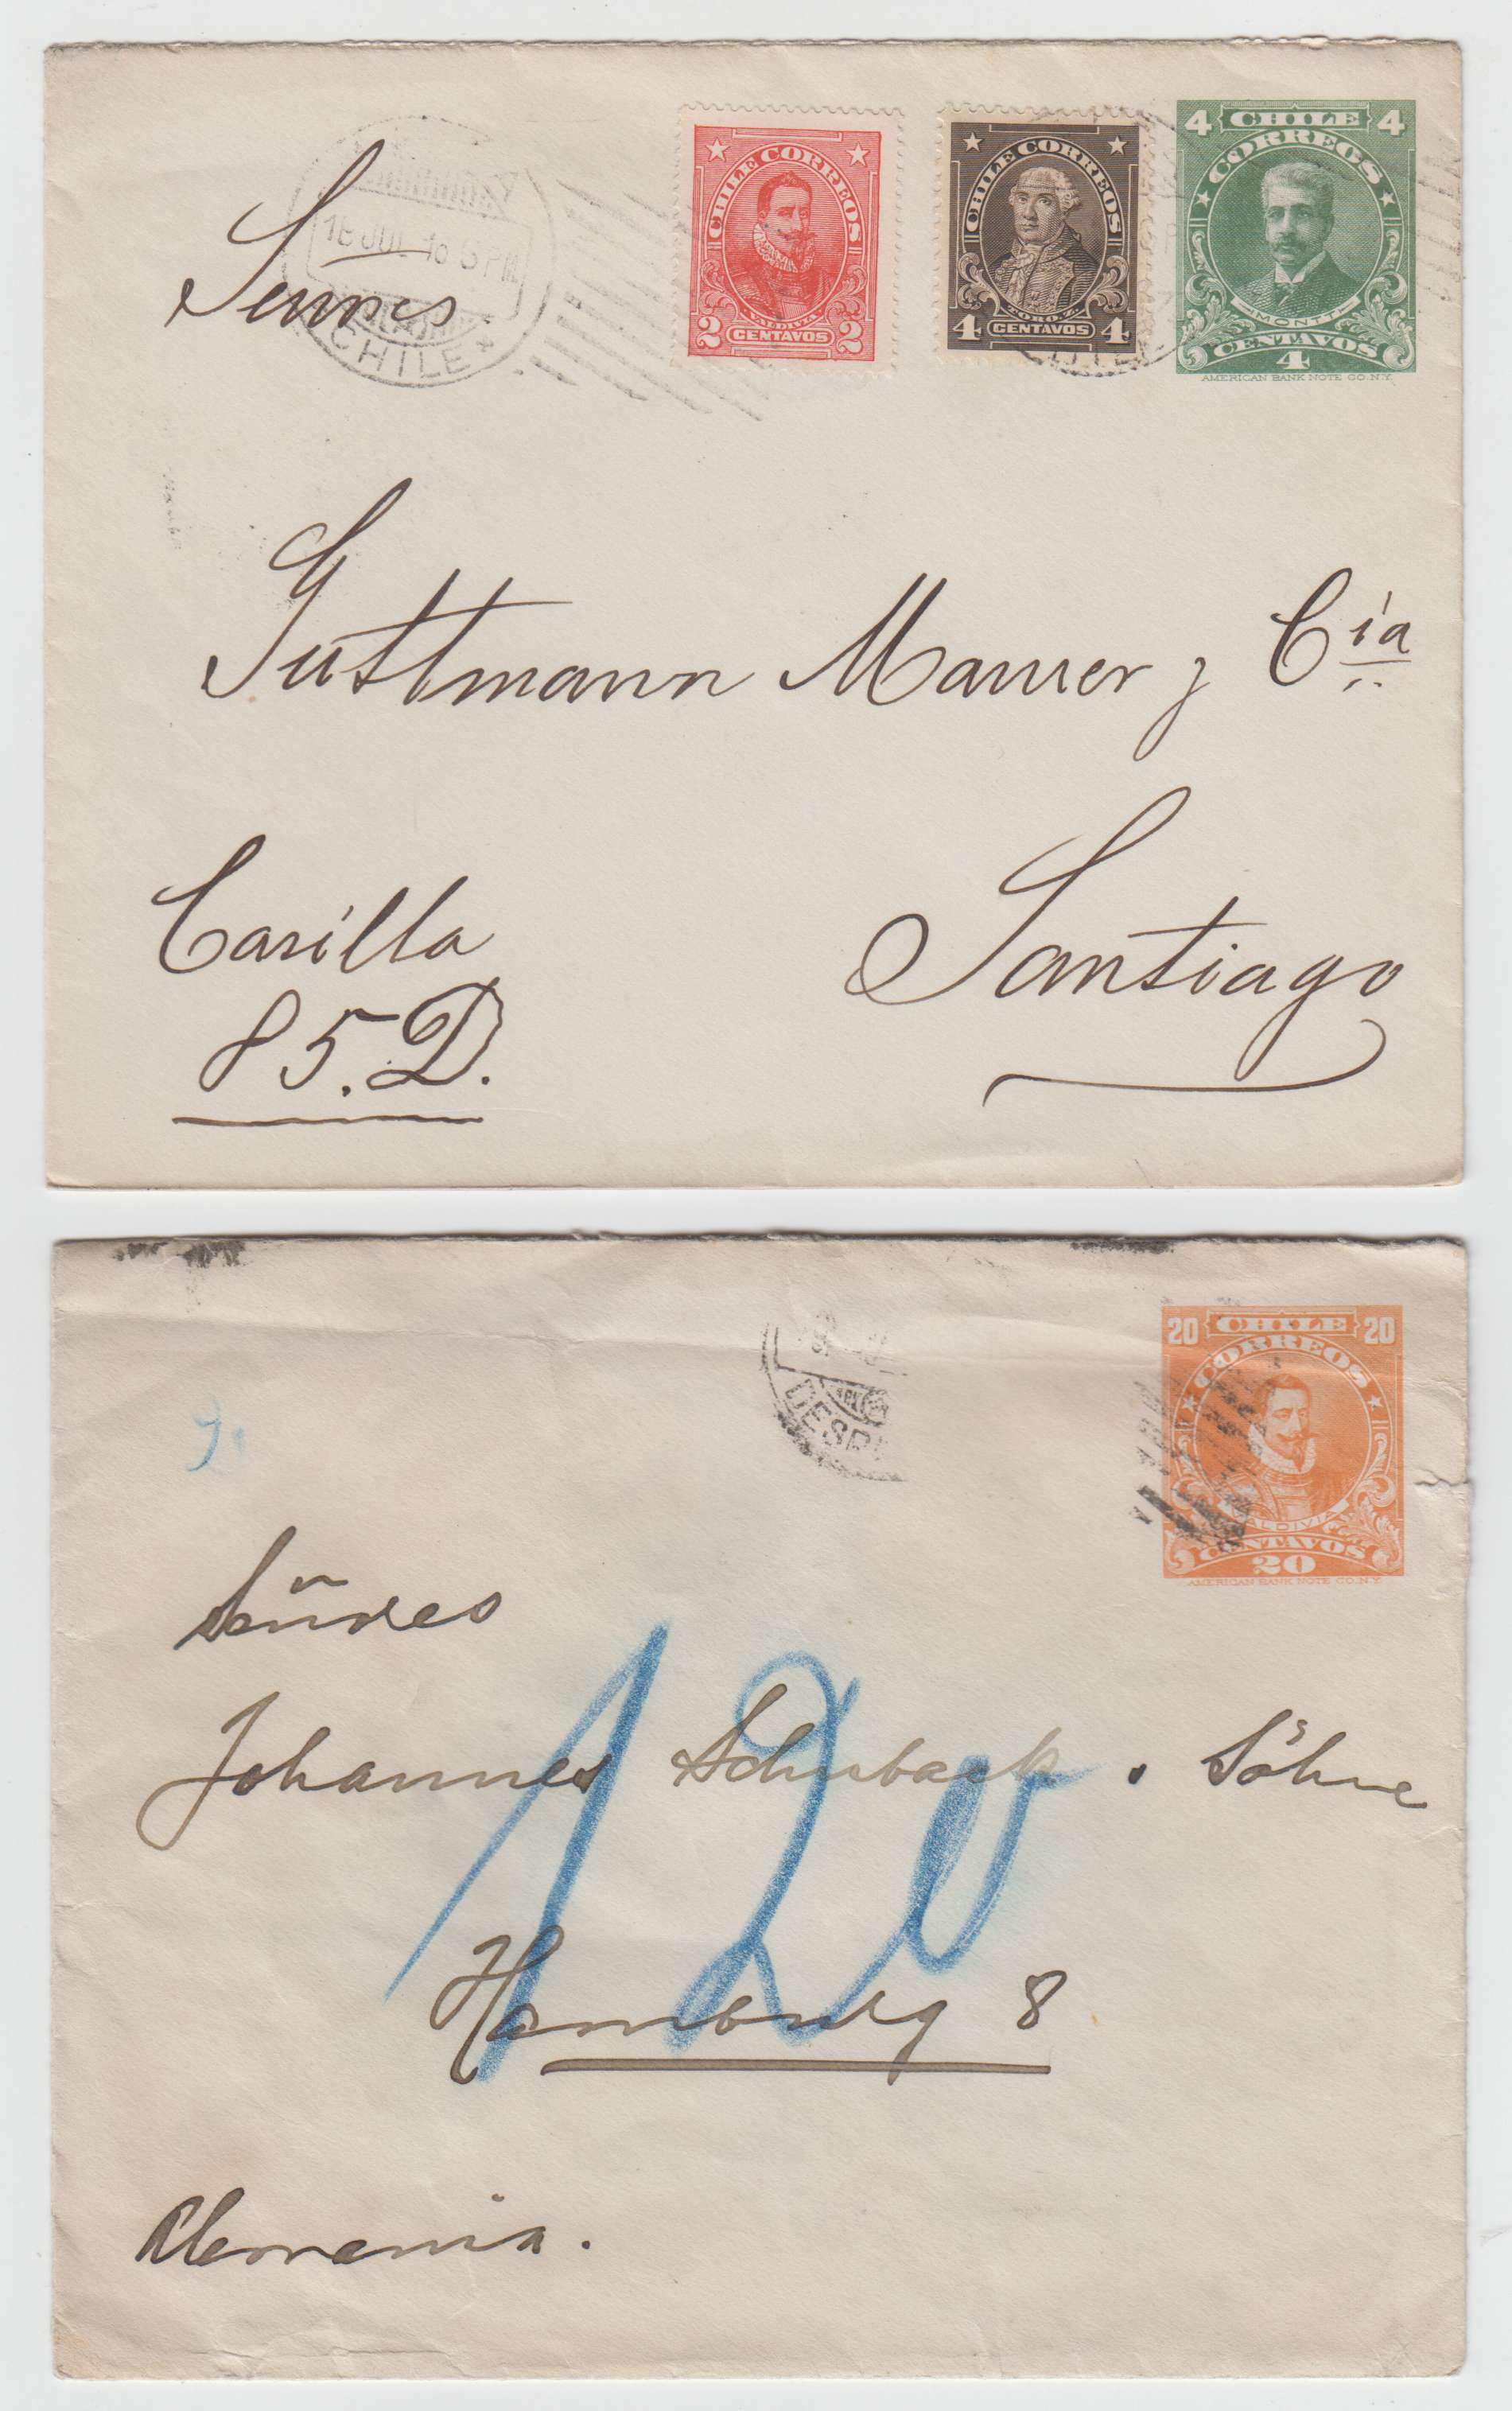 CHILE CORREOS
VALDIVIA
2 CENTAVOS 2
CHILE CORREOS
TORO. Z
4 CENTAVOS 4
4 CHILE 4
CORREOS
MONTT
CENTAVOS
4
AMERICAN BANK NOTE CO. N.Y.
JUL 16 5 PM
CHILE
Guttmann Maurer y Cía
Casilla
85.D.
Santiago
20 CHILE 20
CORREOS
VALDIVIA
CENTAVOS
20
AMERICAN BANK NOTE CO. N.Y.
DESP
Señores
Johannes Schuback & Söhne
120
Hamburg 8
Alemania.